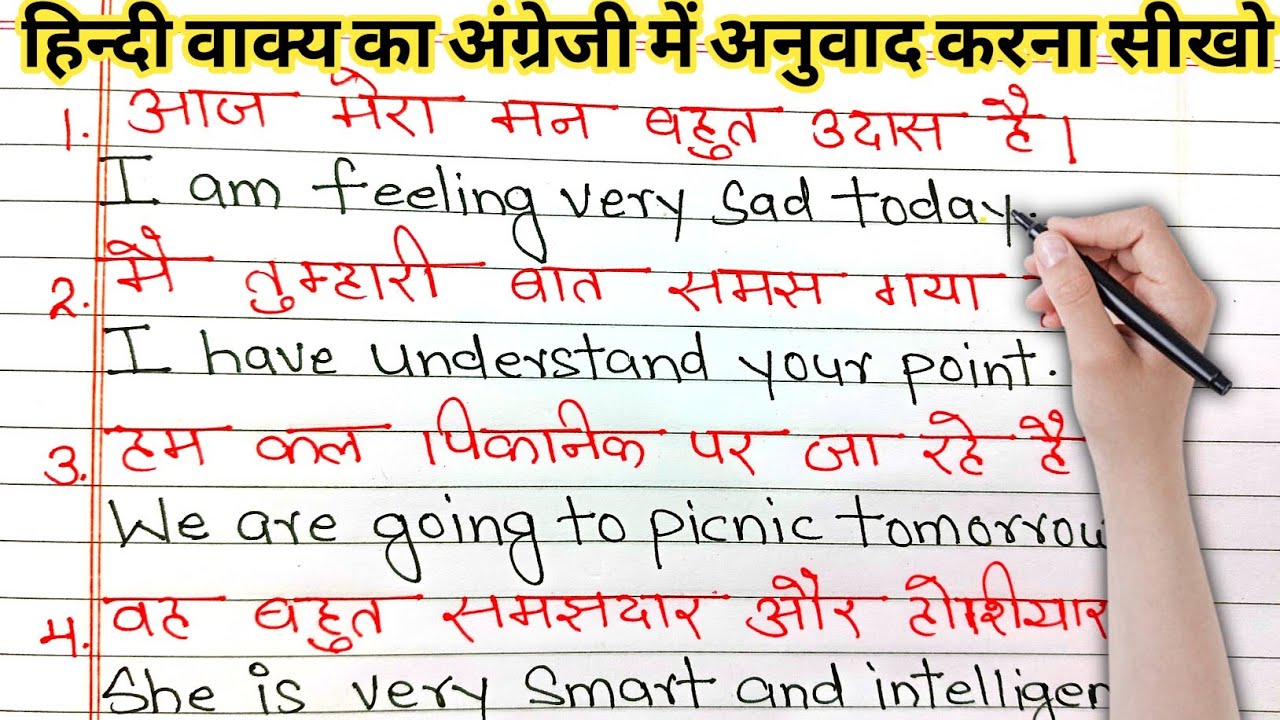 हिन्दी वाक्य का अंग्रेजी में अनुवाद करना सीखो
1. आज मेरा मन बहुत उदास है।
I am feeling very sad today.
2. मै तुम्हारी बात समस गया
I have understand your point.
3. हम कल पिकनिक पर जा रहे है
We are going to picnic tomorrow
4. वह बहुत समझदार और होशियार
She is very smart and intelligen